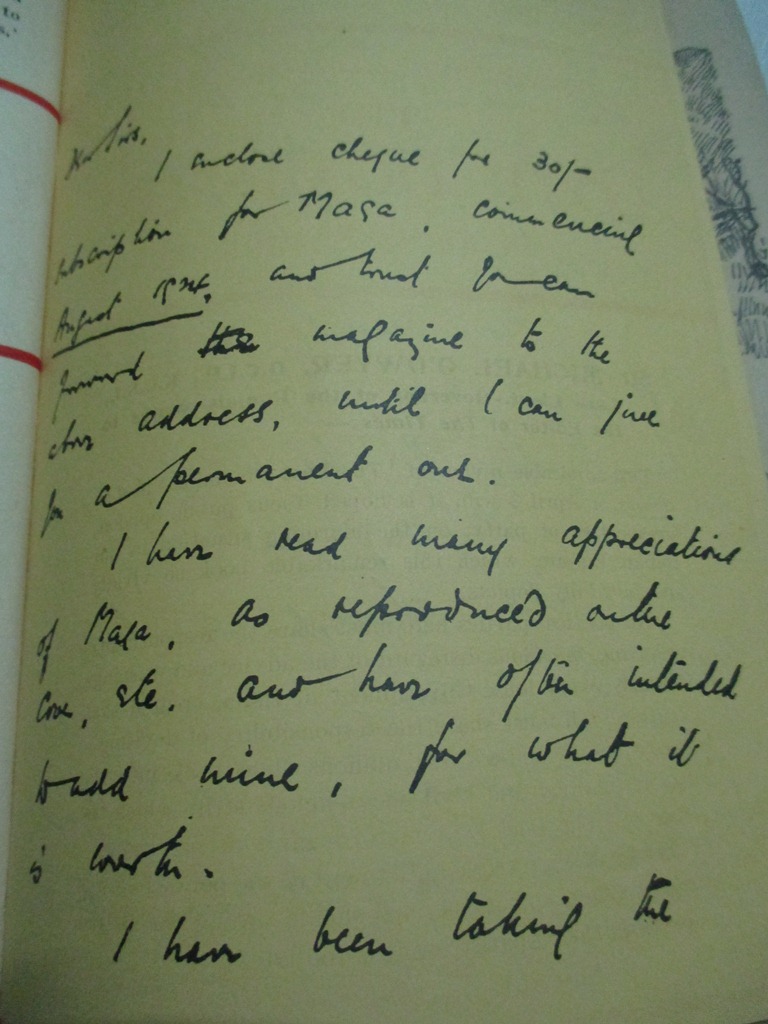 Dear Sirs,
I enclose cheque for 30/-
subscription for Maga, commencing
August and trust you can
forward magazine to the
above address, until I can give
you a permanent one.
I have read many appreciations
of Maga, as reproduced on the
cover, etc. and have often intended
to add mine, for what it
is worth.
I have been taking the